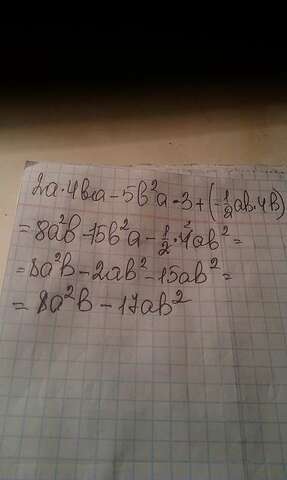 2a·4ba - 5b²a·3 + (-1/2ab·4b)
= 8a²b - 15b²a - 1/2·4²ab² =
= 8a²b - 2ab² - 15ab² =
= 8a²b - 17ab²